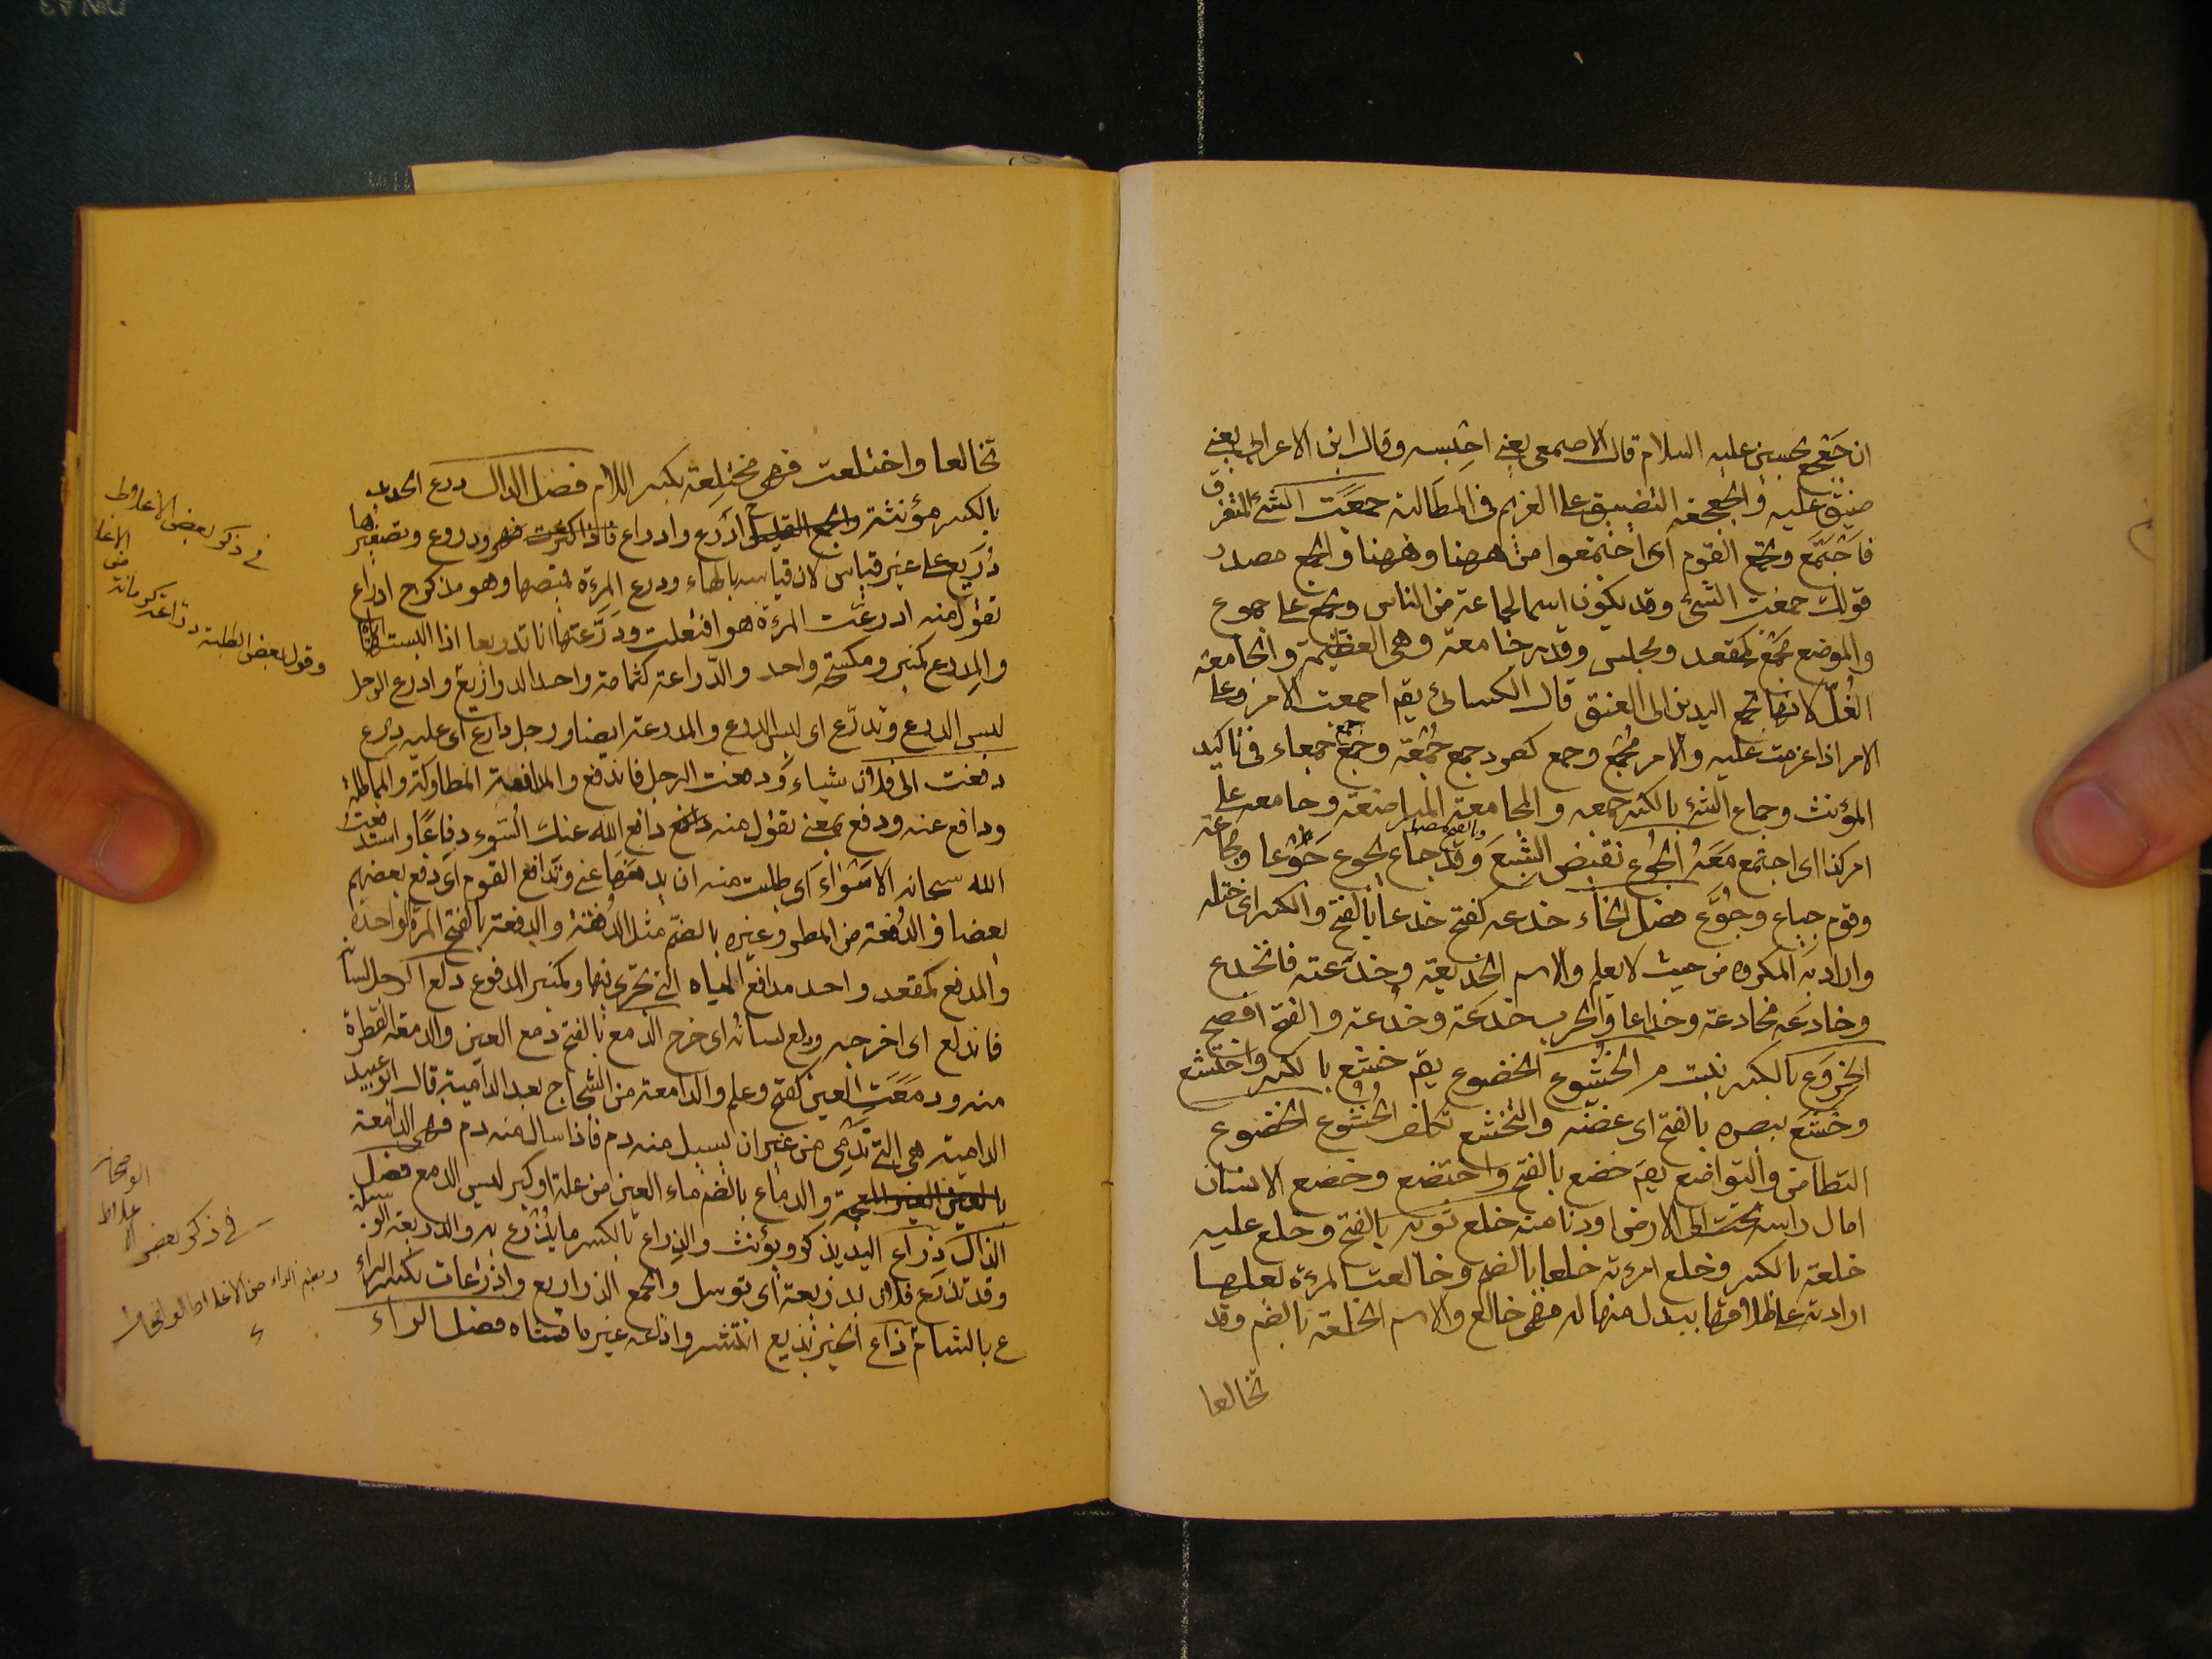 ان جعجع بحسين عليه السلام قال الاصمعي يعني احبسه وقال ابن الاعرابي يعني
ضيّق عليه والجعجعة التضييق على الغريم في المطالبة جمعت الشئ المتفرق
فاجتمع وتجمع القوم اى اجتمعوا من ههنا وههنا والجمع مصدر
قولك جمعت الشئ وقد يكون اسما لجماعة من الناس ويجمع على جموع
والموضع مجمع كمقعد ومجلس وقدر جامعة وهي العظيمة والجامعة
الغلّ لانها تجمع اليدين الى العنق قال الكسائي يقم اجمعت الامر وعلى
الامر اذا عزمت عليه والامر مجمع وجمع كصرد جمع جمعة وجمع جمع جمعاء في تأكيد
المؤنث وجماع الشئ بالكسر جمعه والمجامعة المباضعة وجامعه على
امر كذا اى اجتمع معه الجوع نقيض الشبع وقد جاع يجوع جوعا ومجاعة
وبالفتح مصدر
وقوم جياع وجوّع فصل الخاء خدعه كفتح خدعا بالفتح والكسر اى ختله
واراد به المكروه من حيث لا يعلم والاسم الخديعة وخدعته فانخدع
وخادعه مخادعة وخداعا والحرب خدعة وخدعة والفتح افصح
الخروع بالكسر نبت م الخشوع الخضوع يقم خشع بالكسر واختشع
وخشع ببصره بالفتح اى غضه والتخشع تكلف الخشوع الخضوع
التطامن والتواضع يقم خضع بالفتح واختضع وخضع الانسان
امال راسه الى الارض اودنا منه خلع ثوبه بالفتح وخلع عليه
خلعة بالكسر وخلع امرءته خلعا بالضم وخالعت المرءة بعلها
ارادته على طلاقها ببدل منها له فهي خالع والاسم الخلعة بالضم وقد
تخالعا
تخالعا واختلعت فهي مختلعة بكسر اللام فصل الدال درع الحديد
بالكسر مؤنثة والجمع القليل ادرع وادراع فاذا كثرت فهو دروع وتصغيرها
دريع على غير قياس لان قياسه بالهاء ودرع المرءة قميصها وهو مذكر ج ادراع
تقول منه ادرعت المرءة هو افتعلت ودرّعتها انا تدريعا اذا البستها
والمدرع كمنبر ومكنسة واحد والدّراعة كثمامة واحد الدواريع وادرع الرجل
لبس الدرع وتدرّع اى لبس الدرع والمدرعة ايضا ورجل دارع اى عليه درع
دفعت الى فلان شياء ودفعت الرجل فاندفع والمدافعة المطاولة والمماطلة
ودافع عنه ودفع بمعنى تقول منه دافع الله عنك السوء دفاعا واستدفعت
الله سبحانه الاسواء اى طلبت منه ان يدفعها عني وتدافع القوم اى دفع بعضهم
بعضا والدفعة من المطر وغيره بالضم مثل الدفقة والدفعة بالفتح المرة الواحدة
والمدفع كمقعد واحد مدافع المياه التي تجري فيها وكمنبر الدفوع دلع الرجل لسانه
فاندلع اى اخرجه ودلع لسانه اى خرج الدمع بالفتح دمع العين والدمعة القطرة
منه ودمعت العين كفتح وعلم والدامعة من الشجاج بعد الدامية قال ابو عبيد
الدامية هي التي تدمى من غير ان يسيل منه دم فاذا سال منه دم فهي الدامعة
بالعين الغير المعجمة والدماع بالضم ماء العين من علة او كبر ليس الدمع فصل
الذال ذراع اليد يذكر ويؤنث والذراع بالكسر ما يذرع به والذريعة الوسيلة
وقد تذرّع فلان بذريعة اى توسل والجمع الذرايع واذرعات بكسر الراء
ع بالشام ذاع الخبر يذيع انتشر واذاعه غيره افشاه فصل الراء
في ذكر بعض الاغلاط
وقول بعض الطلبة درّاعة كرمانة من الاغلا
في ذكر بعض الاغلاط الواضحة
وبضم الراء من الاغلاط الواضحة